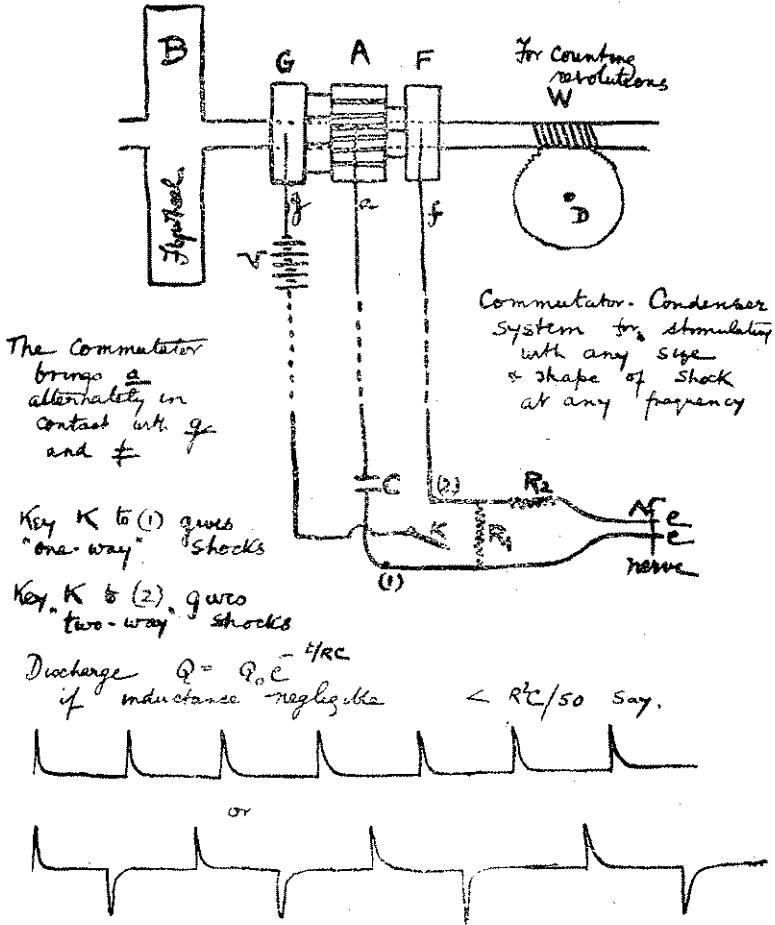 B
G
A
F
For counting
revolutions
W
Flywheel
g
a
f
D
V
Commutator-Condenser
system for stimulating
with any size
& shape of shock
at any frequency
The commutator
brings a
alternately in
contact with g
and f
C
(2)
R2
K
R1
N
e
e
nerve
(1)
Key K to (1) gives
"one-way" shocks
Key K to (2) gives
"two-way" shocks
Discharge Q = Q₀e^-t/RC
if inductance negligible < R²C/50 say.
or